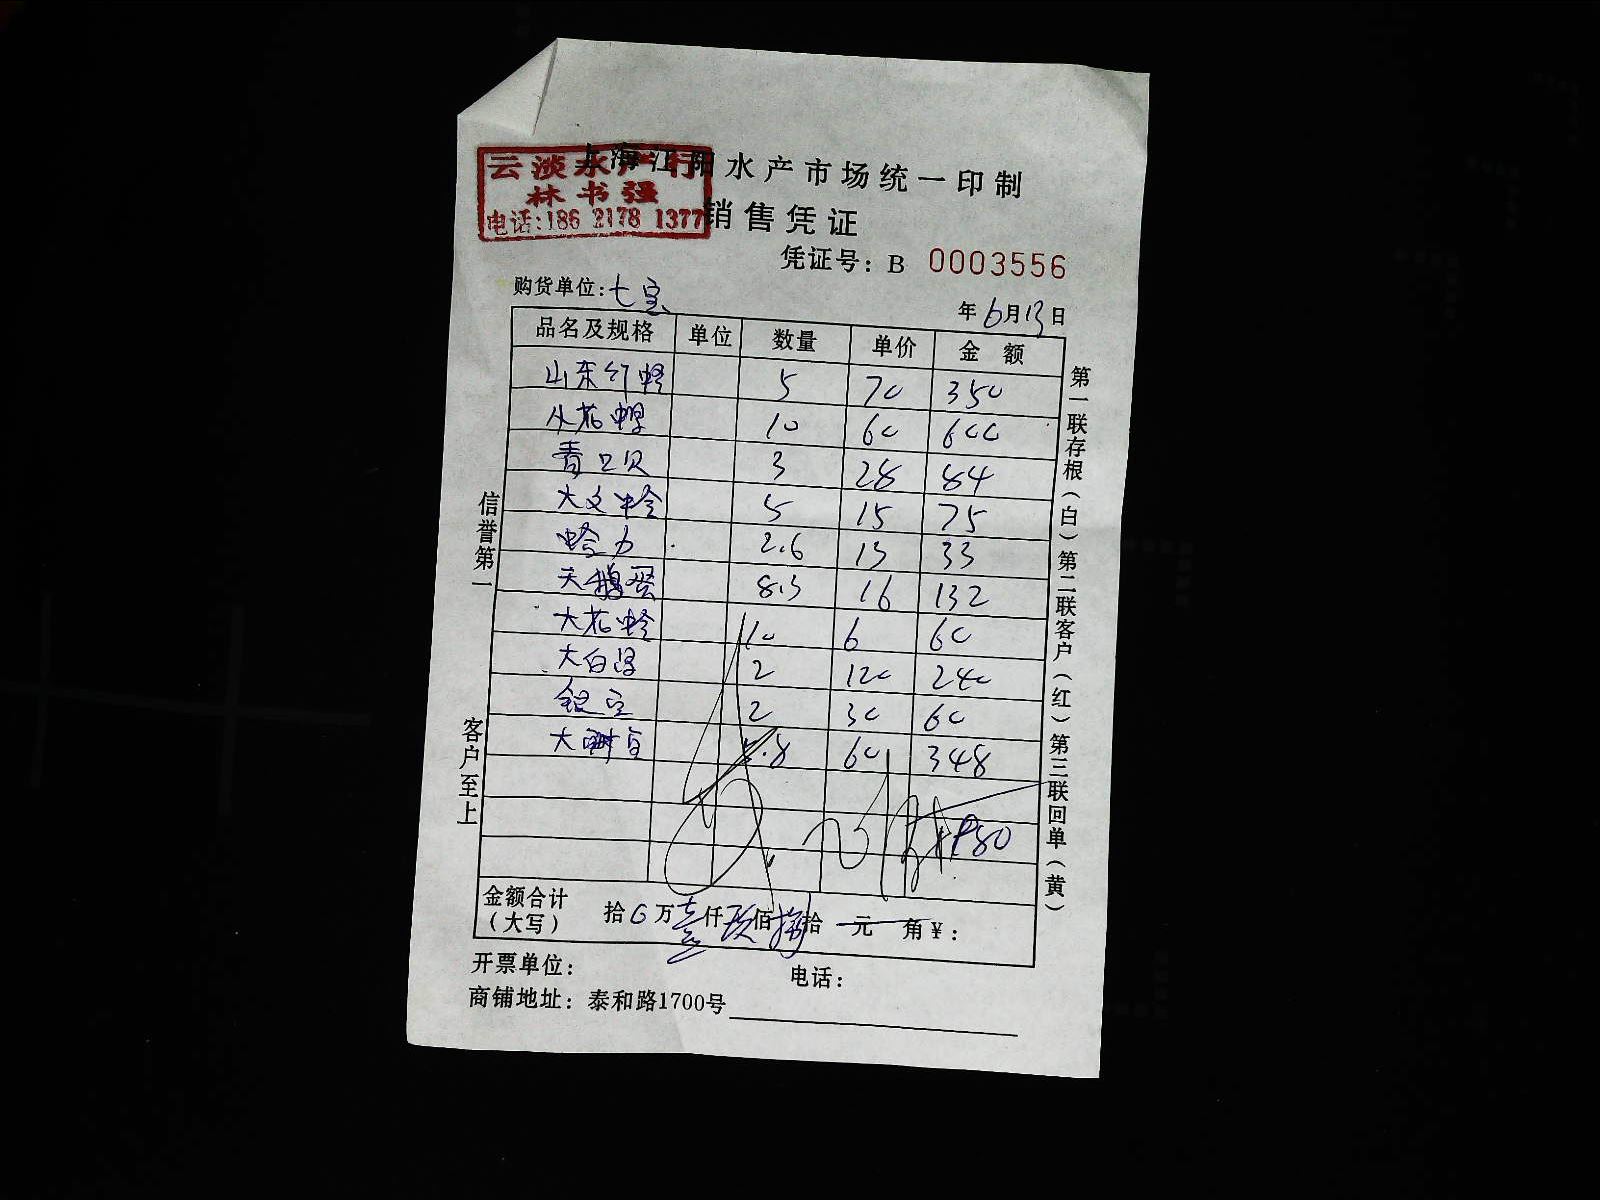 上海江阳水产市场统一印制
云淡水产行
林书强
电话:186 2178 1377
销售凭证
凭证号: B 0003556
购货单位:七宝
年6月13日
品名及规格 单位 数量 单价 金 额
山东竹蛏 5 70 350
10 60 600
青口贝 3 28 84
大文蛤 5 15 75
蛤力 2.6 13 33
天鹅蛋 8.3 16 132
大花蛤 10 6 60
大白 2 120 240
银宝 2 30 60
大 5.8 60 348
1980
金额合计
(大写) 拾0万壹仟玖佰捌拾 元 角¥:
开票单位: 电话:
商铺地址: 泰和路1700号
信誉第一
客户至上
第一联存根(白)第二联客户(红)第三联回单(黄)